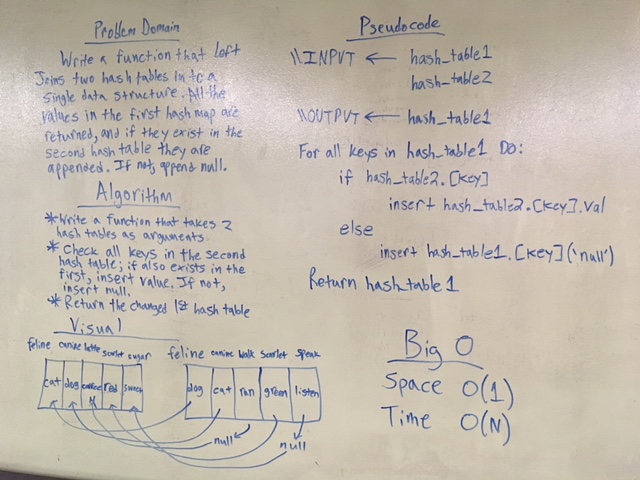 Problem Domain
Write a function that Left
Joins two hash tables into a
single data structure. All the
values in the first hash map are
returned, and if they exist in the
second hash table they are
appended. If not, append null.
Algorithm
*Write a function that takes 2
hash tables as arguments.
* Check all keys in the second
hash table; if also exists in the
first, insert value. If not,
insert null.
* Return the changed 1st hash table
Visual
feline canine latte scarlet sugar
cat dog coffee red sweet
N
feline canine walk scarlet speak
dog cat ran green listen
null
null
Pseudocode
\\INPUT ← hash_table1
hash_table2
\\OUTPUT ← hash_table1
For all keys in hash_table1 Do:
if hash_table2.[key]
insert hash_table2.[key].val
else
insert hash_table1.[key]('null')
Return hash_table1
Big O
Space O(1)
Time O(N)